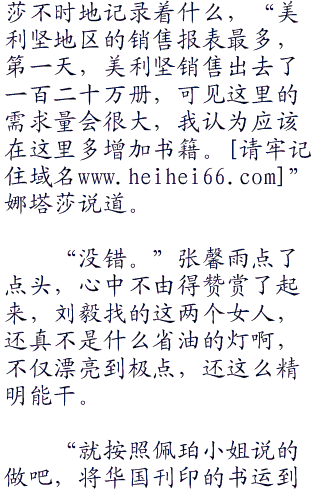 莎不时地记录着什么，“美
利坚地区的销售报表最多，
第一天，美利坚销售出去了
一百二十万册，可见这里的
需求量会很大，我认为应该
在这里多增加书籍。[请牢记
住域名www.heihei66.com]”
娜塔莎说道。
“没错。”张馨雨点了
点头，心中不由得赞赏了起
来，刘毅找的这两个女人，
还真不是什么省油的灯啊，
不仅漂亮到极点，还这么精
明能干。
“就按照佩珀小姐说的
做吧，将华国刊印的书运到